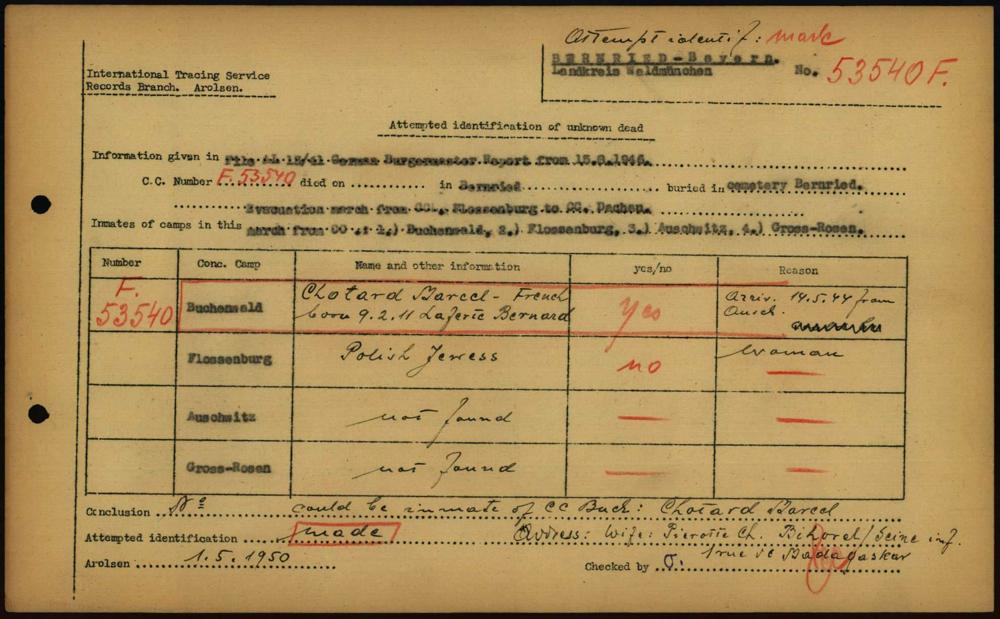 Attempt identif: mark
BERNRIED-Bayern.
Landkreis Waldmünchen
No. 53540 F.
International Tracing Service
Records Branch. Arolsen.
Attempted identification of unknown dead
Information given in File 12/41 German Burgermaster Report from 15.6.1946.
C.C. Number F.53540 died on in Bernried buried in cemetery Bernried.
Evacuation march from CC. Flossenburg to CC. Dachau.
Inmates of camps in this march from CC 1.) Buchenwald, 2.) Flossenburg, 3.) Auschwitz, 4.) Gross-Rosen.
Number Conc. Camp Name and other information yes/no Reason
F. 53540 Buchenwald Chotard Marcel - French yes Arriv. 14.5.44 from
born 9.2.11 Laferté Bernard Ausch.
Flossenburg Polish Jewess no Woman
Auschwitz not found —
Gross-Rosen not found — —
Conclusion Nº could be inmate of CC Buch: Chotard Marcel
Attempted identification made Address: Wife: Pierotte Ch. Bihorel/Seine inf.
1 rue de Madagaskar
Arolsen 1.5.1950 Checked by